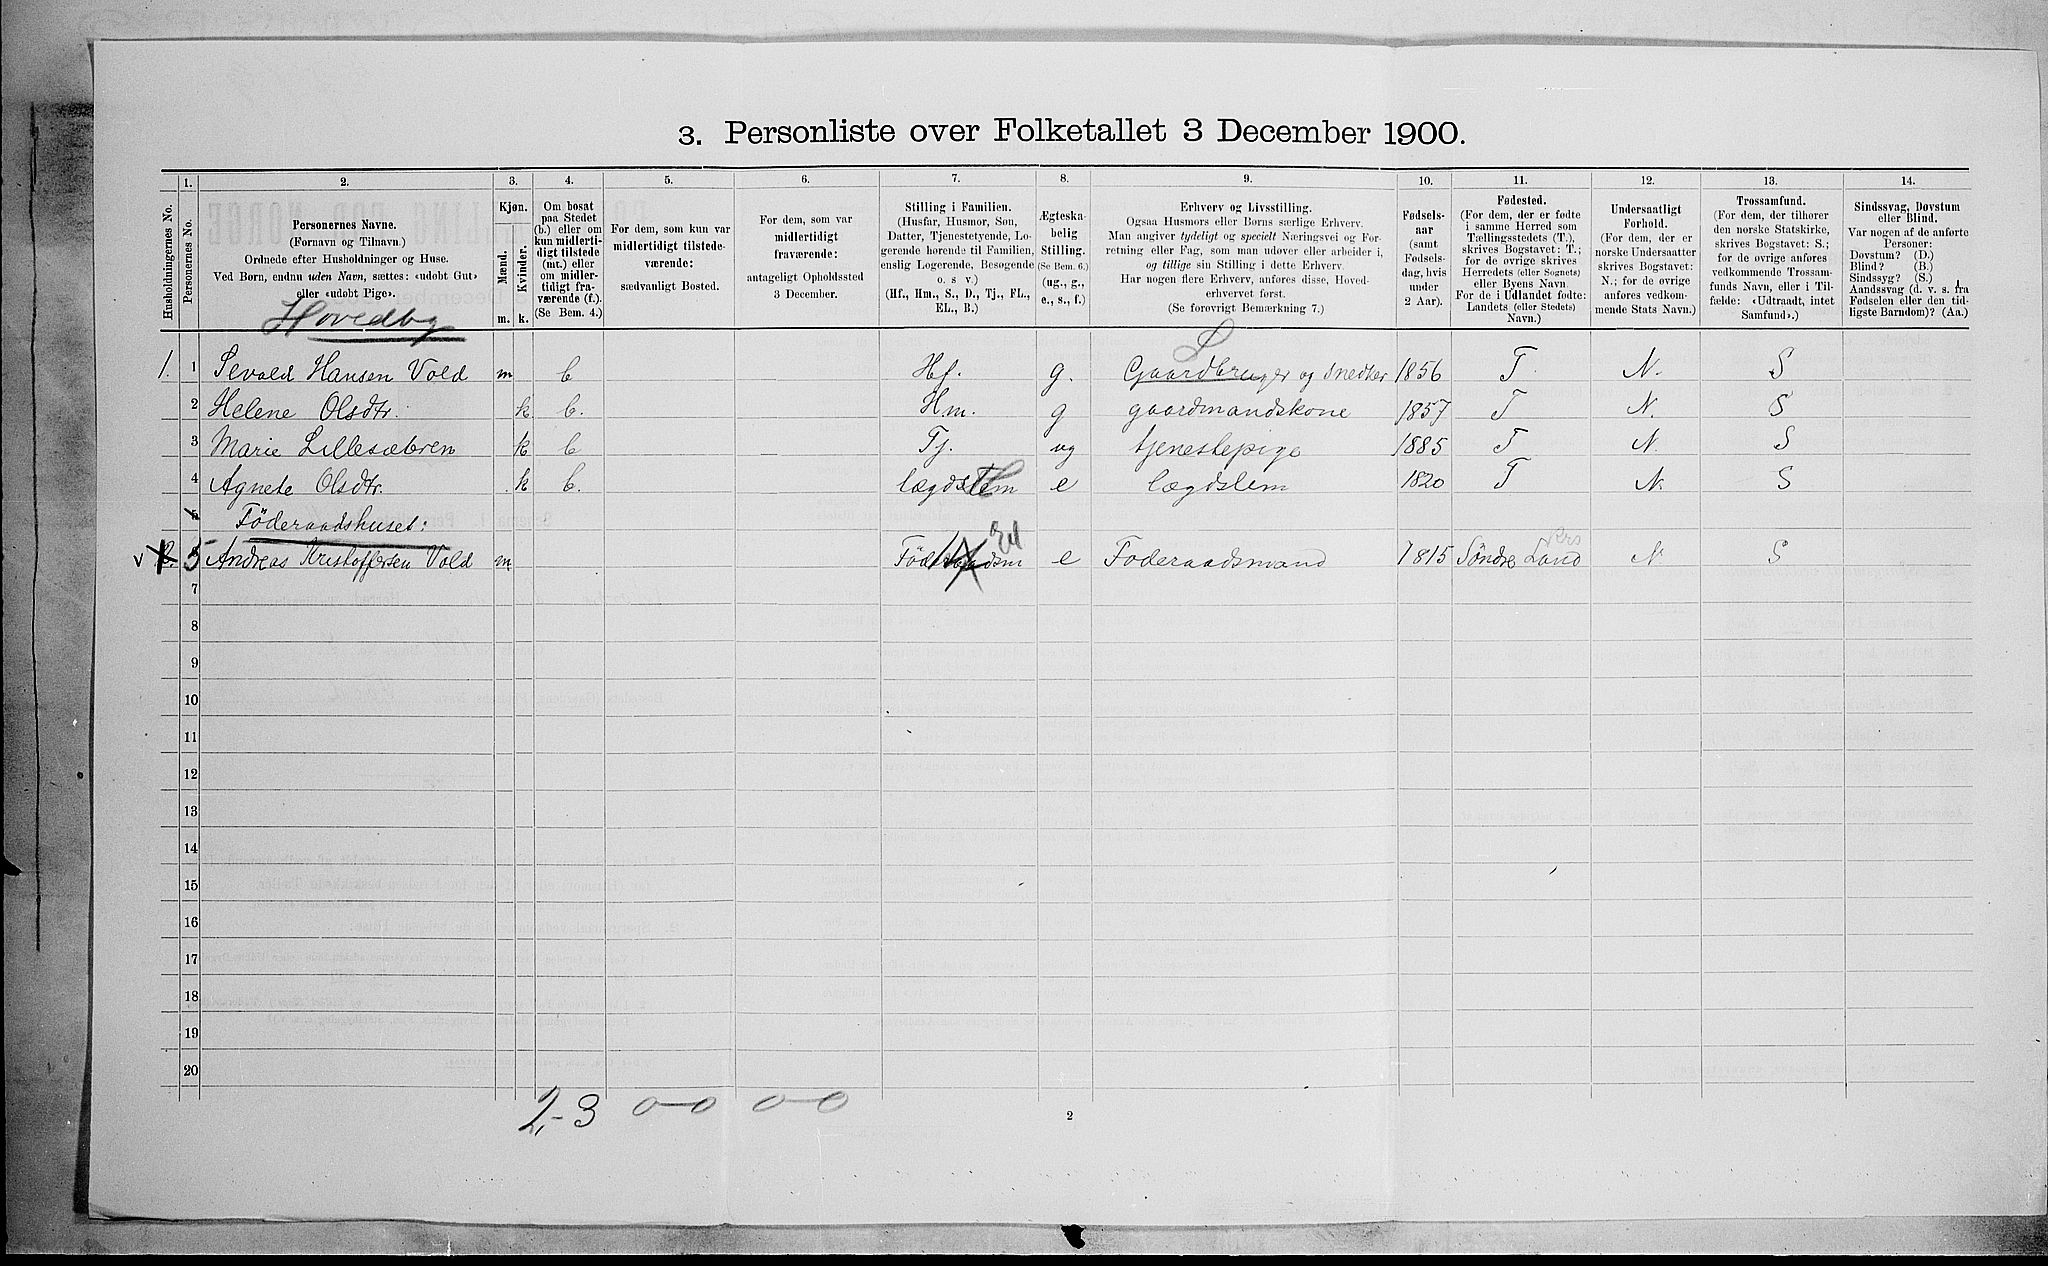 3. Personliste over Folketallet 3 December 1900.
1. 2. 3. 4. 5. 6. 7. 8. 9. 10. 11. 12. 13. 14.
Husholdningernes No.
Personernes No.
Personernes Navne.
(Fornavn og Tilnavn.)
Ordnede efter Husholdninger og Huse.
Ved Børn, endnu uden Navn, sættes: «udøbt Gut»
eller «udøbt Pige».
Kjøn.
Mænd.
Kvinder.
m. k.
Om bosat
paa Stedet
(b.) eller om
kun midlerti-
digt tilstede
(mt.) eller
om midler-
tidigt fra-
værende (f.).
(Se Bem. 4.)
For dem, som kun var
midlertidigt tilstede-
værende:
sædvanligt Bosted.
For dem, som var
midlertidigt
fraværende:
antageligt Opholdssted
3 December.
Stilling i Familien.
(Husfar, Husmor, Søn,
Datter, Tjenestetyende, Lo-
gerende hørende til Familien,
enslig Logerende, Besøgende
o. s v.)
(Hf., Hm., S., D., Tj., FL.,
EL., B.)
Ægteska-
belig
Stilling.
(Se Bem. 6.)
(ug., g.,
e., s., f.)
Erhverv og Livsstilling.
Ogsaa Husmors eller Børns særlige Erhverv.
Man angiver tydeligt og specielt Næringsvei og For-
retning eller Fag, som man udøver eller arbeider i,
og tillige sin Stilling i dette Erhverv.
Har nogen flere Erhverv, anføres disse, Hoved-
erhvervet først.
(Se forøvrigt Bemærkning 7.)
Fødsels-
aar
(samt
Fødsels-
dag, hvis
under
2 Aar).
Fødested.
(For dem, der er fødte
i samme Herred som
Tællingsstedets (T.),
skrives Bogstavet: T.;
for de øvrige skrives
Herredets (eller Sognets)
eller Byens Navn.
For de i Udlandet fødte:
Landets (eller Stedets)
Navn.)
Undersaatligt
Forhold.
(For dem, der er
norske Undersaatter
skrives Bogstavet:
N.; for de øvrige
anføres vedkom-
mende Stats Navn.)
Trossamfund.
(For dem, der tilhører
den norske Statskirke,
skrives Bogstavet: S.;
for de øvrige anføres
vedkommende Trossam-
funds Navn, eller i Til-
fælde: «Udtraadt, intet
Samfund».)
Sindssvag, Døvstum
eller Blind.
Var nogen af de anførte
Personer:
Døvstum? (D.)
Blind? (B.)
Sindssyg? (S.)
Aandssvag (d. v. s. fra
Fødselen eller den tid-
ligste Barndom)? (Aa.)
Hovedbg
L
1. 1 Sevald Hansen Vold m b Hf. g. Gaardbruger og Snedker 1856 T N. S
2 Helene Olsdtr. k b. Hm. g gaardmandskone 1857 T N. S
3 Marie Lillesæteren k b Tj. ug tjenestepige 1885 T N. S
4 Agnete Olsdtr. k b. lægdslem e lægdslem 1820 T N. S
5 Föderaadshuset:
el
v 2. 5 Andreas Kristoffersen Vold m Föderaadsm e Foderaadsmand 1815 Søndre Land N S
7
8
9
10
11
12
13
14
15
16
17
18
19
20
2-3 0-0 0-0
2